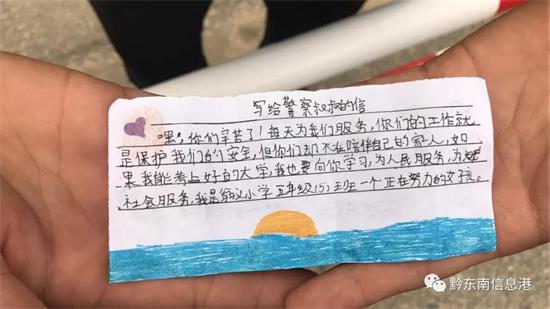 写给警察叔叔的信
"嘿"，你们辛苦了！每天为我们服务，你们的工作就
是保护我们的安全，但你们却不在陪伴自己的家人，如
果我能考上好的大学，我也要向你学习，为人民服务，为
社会服务，我是翁义小学五年级(5)班一个正在努力的女孩。
黔东南信息港